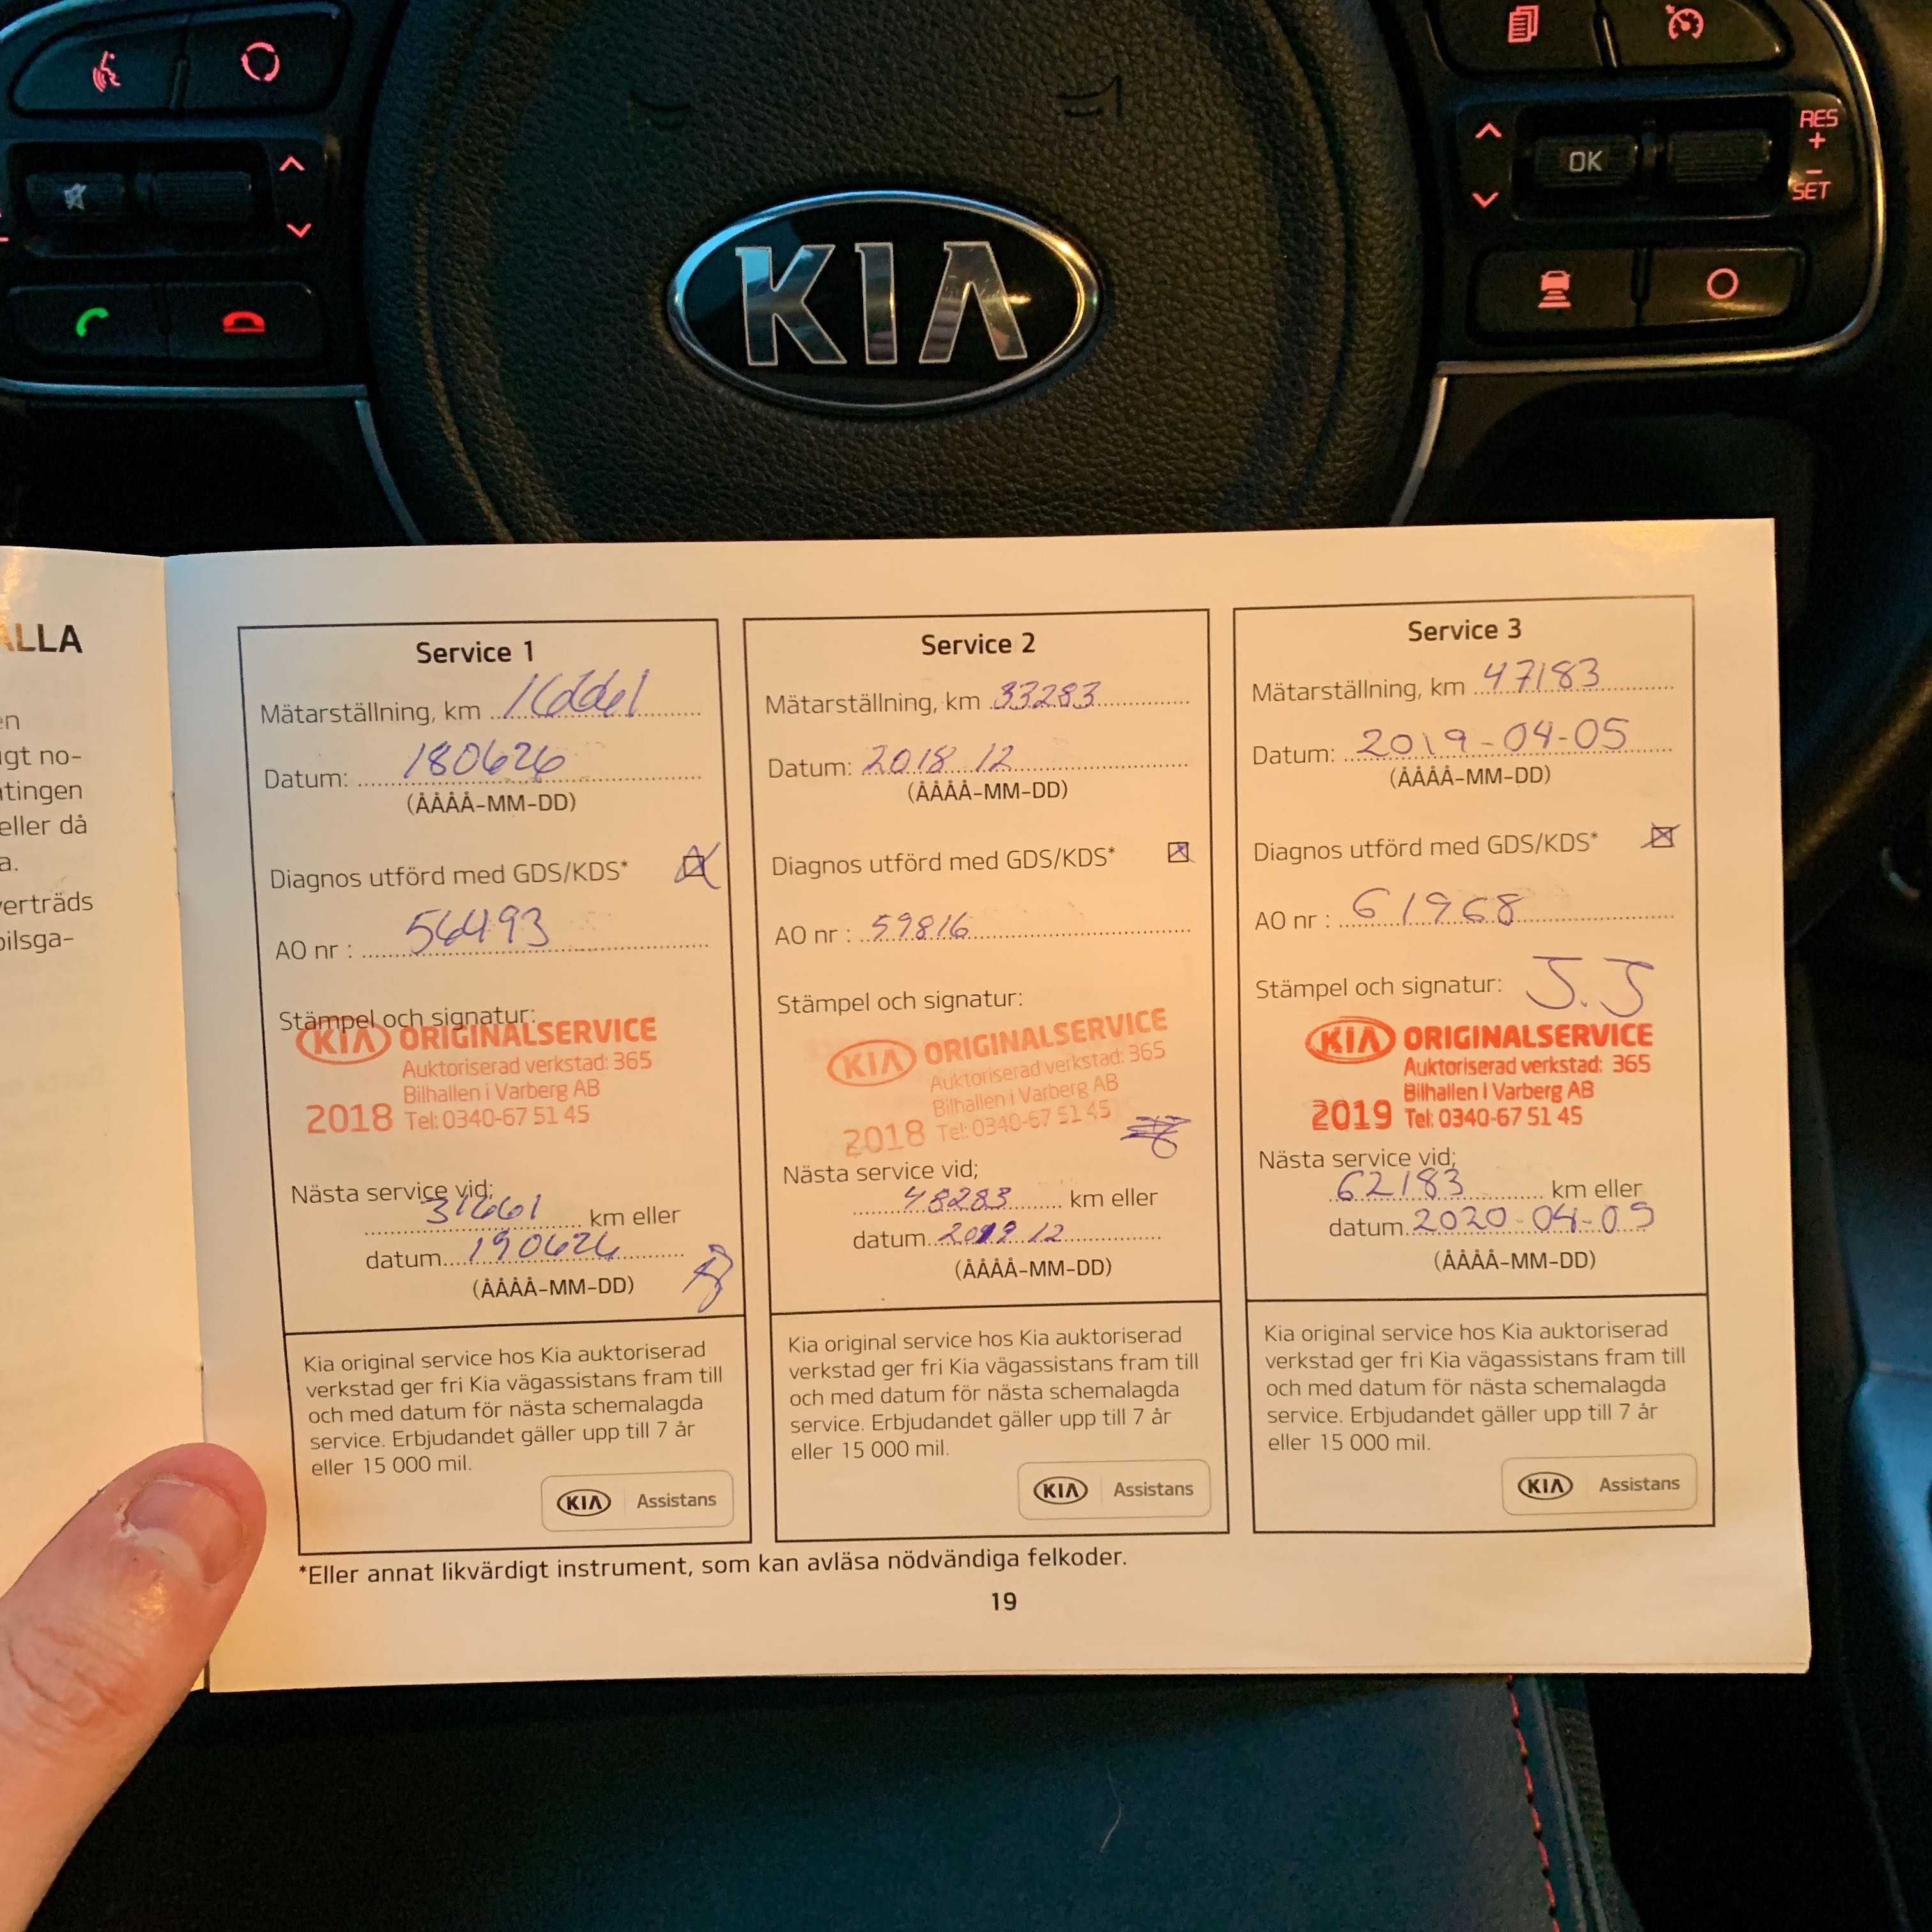 KIA
OK
RES
+
–
SET
ALLA
en
igt no-
ntingen
eller då
a.
verträds
bilsga-
Service 1
Mätarställning, km 16661
Datum: 180626
(ÅÅÅÅ-MM-DD)
Diagnos utförd med GDS/KDS*
AO nr : 56493
Stämpel och signatur:
KIA ORIGINALSERVICE
Auktoriserad verkstad: 365
Bilhallen i Varberg AB
2018 Tel: 0340-67 51 45
Nästa service vid;
31661 km eller
datum 190626
(ÅÅÅÅ-MM-DD)
Kia original service hos Kia auktoriserad
verkstad ger fri Kia vägassistans fram till
och med datum för nästa schemalagda
service. Erbjudandet gäller upp till 7 år
eller 15 000 mil.
KIA Assistans
Service 2
Mätarställning, km 33283
Datum: 2018 12
(ÅÅÅÅ-MM-DD)
Diagnos utförd med GDS/KDS*
AO nr : 59816
Stämpel och signatur:
KIA ORIGINALSERVICE
Auktoriserad verkstad: 365
Bilhallen i Varberg AB
2018 Tel: 0340-67 51 45
Nästa service vid;
48283 km eller
datum 2019 12
(ÅÅÅÅ-MM-DD)
Kia original service hos Kia auktoriserad
verkstad ger fri Kia vägassistans fram till
och med datum för nästa schemalagda
service. Erbjudandet gäller upp till 7 år
eller 15 000 mil.
KIA Assistans
Service 3
Mätarställning, km 47183
Datum: 2019-04-05
(ÅÅÅÅ-MM-DD)
Diagnos utförd med GDS/KDS*
AO nr : 61968
Stämpel och signatur: J.J
KIA ORIGINALSERVICE
Auktoriserad verkstad: 365
Bilhallen i Varberg AB
2019 Tel: 0340-67 51 45
Nästa service vid;
62183 km eller
datum 2020-04-05
(ÅÅÅÅ-MM-DD)
Kia original service hos Kia auktoriserad
verkstad ger fri Kia vägassistans fram till
och med datum för nästa schemalagda
service. Erbjudandet gäller upp till 7 år
eller 15 000 mil.
KIA Assistans
*Eller annat likvärdigt instrument, som kan avläsa nödvändiga felkoder.
19